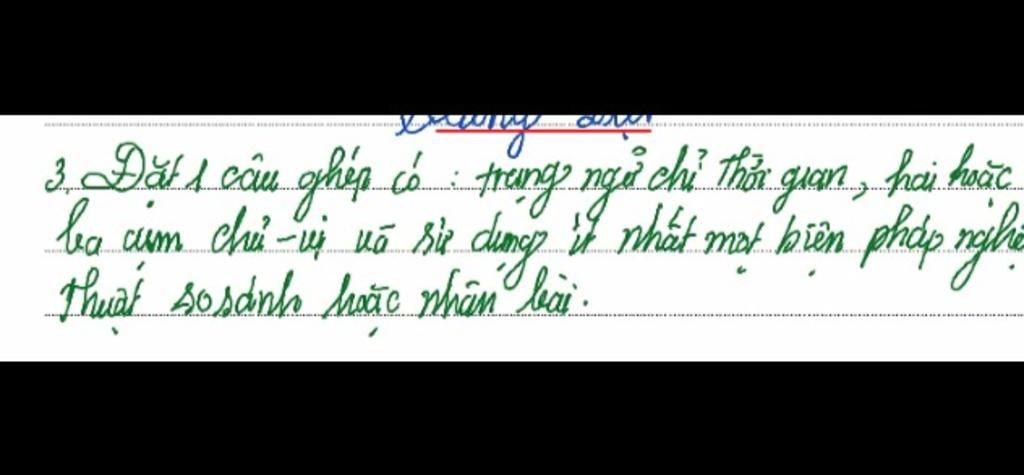 3. Đặt 1 câu ghép có : trạng ngữ chỉ thời gian, hai hoặc
ba cụm chủ - vị và sử dụng ít nhất một biện pháp nghệ
thuật so sánh hoặc nhân hoá.